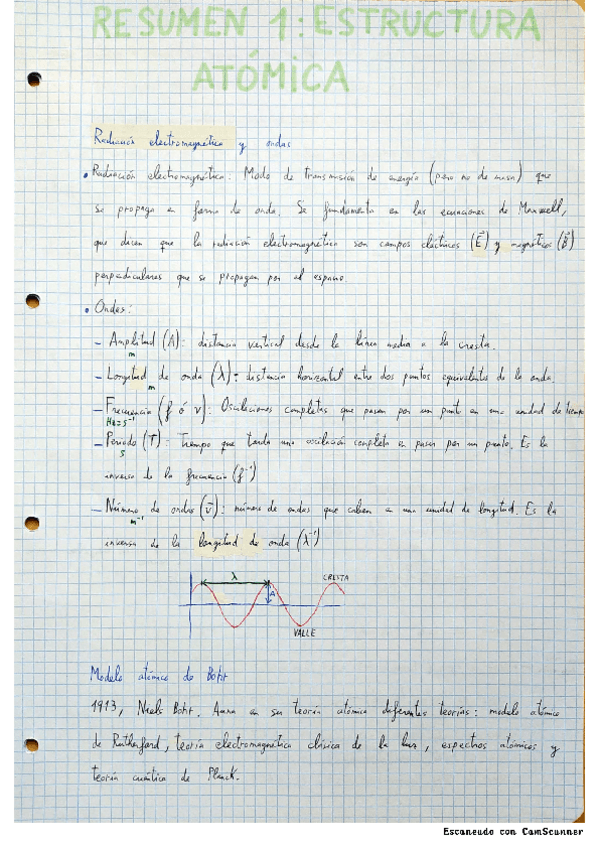 RESUMEN 1: ESTRUCTURA
ATÓMICA
Radiación electromagnética y ondas
• Radiación electromagnética: Modo de transmisión de energía (pero no de masa) que
se propaga en forma de onda. Se fundamenta en las ecuaciones de Maxwell,
que dicen que la radiación electromagnética son campos eléctricos (E⃗) y magnéticos (B⃗)
perpendiculares que se propagan por el espacio.
• Ondas:
– Amplitud (A): distancia vertical desde la línea media a la cresta.
m
– Longitud de onda (λ): distancia horizontal entre dos puntos equivalentes de la onda.
m
– Frecuencia (f ó ν): Oscilaciones completas que pasan por un punto en una unidad de tiempo
Hz=s⁻¹
– Periodo (T): Tiempo que tarda una oscilación completa en pasar por un punto. Es la
s
inversa de la frecuencia (f⁻¹)
– Número de ondas (ν̄): número de ondas que caben en una unidad de longitud. Es la
m⁻¹
inversa de la longitud de onda (λ⁻¹)
λ
CRESTA
A
VALLE
Modelo atómico de Bohr
1913, Niels Bohr. Auna en su teoría atómica diferentes teorías: modelo atómico
de Rutherford, teoría electromagnética clásica de la luz, espectros atómicos y
teoría cuántica de Planck.
Escaneado con CamScanner